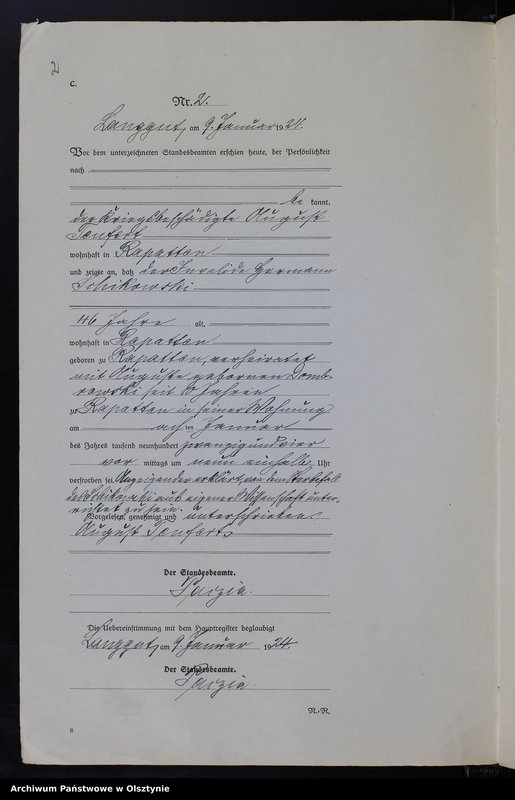 2
C.
Nr. 2.
Langgut, am 9. Januar 1924.
Vor dem unterzeichneten Standesbeamten erschien heute, der Persönlichkeit
nach
be kannt,
der Kriegsbeschädigte August
Senfert
wohnhaft in Rapatten
und zeigte an, daß der Invalide Hermann
Schikowski
46 Jahre alt,
wohnhaft in Rapatten
geboren zu Rapatten, verheiratet
mit Auguste geborenen Domb-
rowski seit Jahren
zu Rapatten in seiner Wohnung
am achten Januar
des Jahres tausend neunhundert zwanzigundvier
vor mittags um neun einhalb Uhr
verstorben sei. Anzeigender erklärt, von dem Sterbefall
des Schikowski aus eigener Wissenschaft unter-
richtet zu sein.
Vorgelesen, genehmigt und unterschrieben
August Senfert
Der Standesbeamte.
Parzia.
Die Uebereinstimmung mit dem Hauptregister beglaubigt
Langgut, am 9. Januar 1924.
Der Standesbeamte.
Parzia.
R.-R.
6
Archiwum Państwowe w Olsztynie